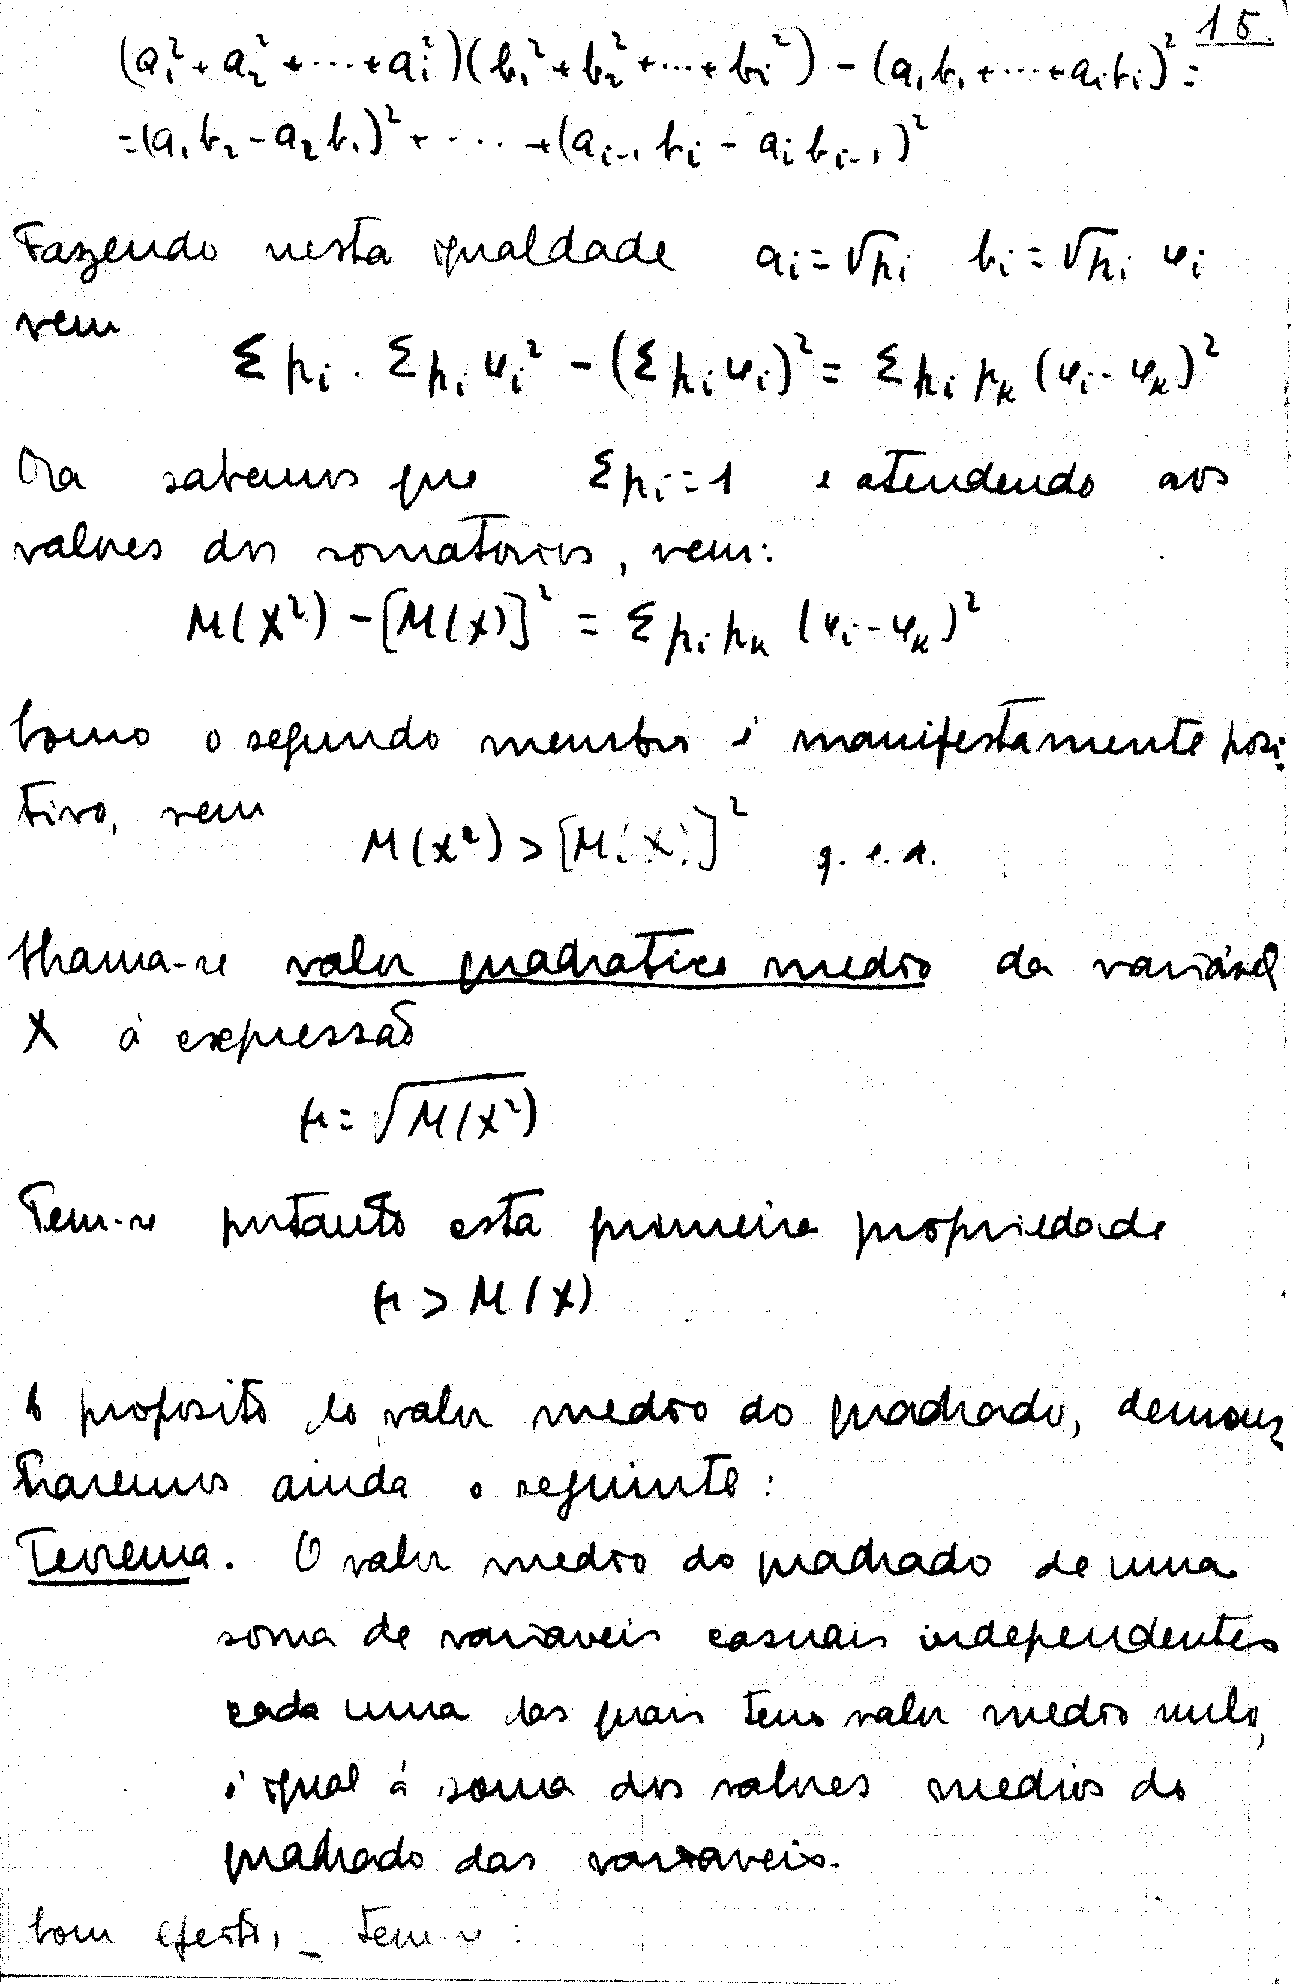 15.
(a₁²+a₂²+⋯+aᵢ²)(b₁²+b₂²+⋯+bᵢ²) - (a₁b₁+⋯+aᵢbᵢ)² =
=(a₁b₂-a₂b₁)²+⋯+(aᵢ₋₁bᵢ - aᵢbᵢ₋₁)²
Fazendo nesta igualdade aᵢ=√pᵢ bᵢ=√pᵢ φᵢ
vem
Σpᵢ . Σpᵢφᵢ² - (Σpᵢφᵢ)² = Σpᵢpₖ(φᵢ-φₖ)²
Ora sabemos que Σpᵢ=1 e atendendo aos
valores dos somatorios, vem:
M(X²) - [M(X)]² = Σpᵢpₖ (φᵢ-φₖ)²
Como o segundo membro é manifestamente posi-
tivo, vem
M(X²) > [M(X)]² q.e.d.
Chama-se valor quadratico medio da variável
X á expressão
μ = √M(X²)
Tem-se portanto esta primeira propriedade
μ > M(X)
A proposito do valor medio do quadrado, demons-
traremos ainda o seguinte:
Teorema. O valor medio do quadrado de uma
soma de variaveis casuais independentes
cada uma das quais tem valor medio nulo,
é igual á soma dos valores medios do
quadrado das variaveis.
Com efeito, _ tem-se: